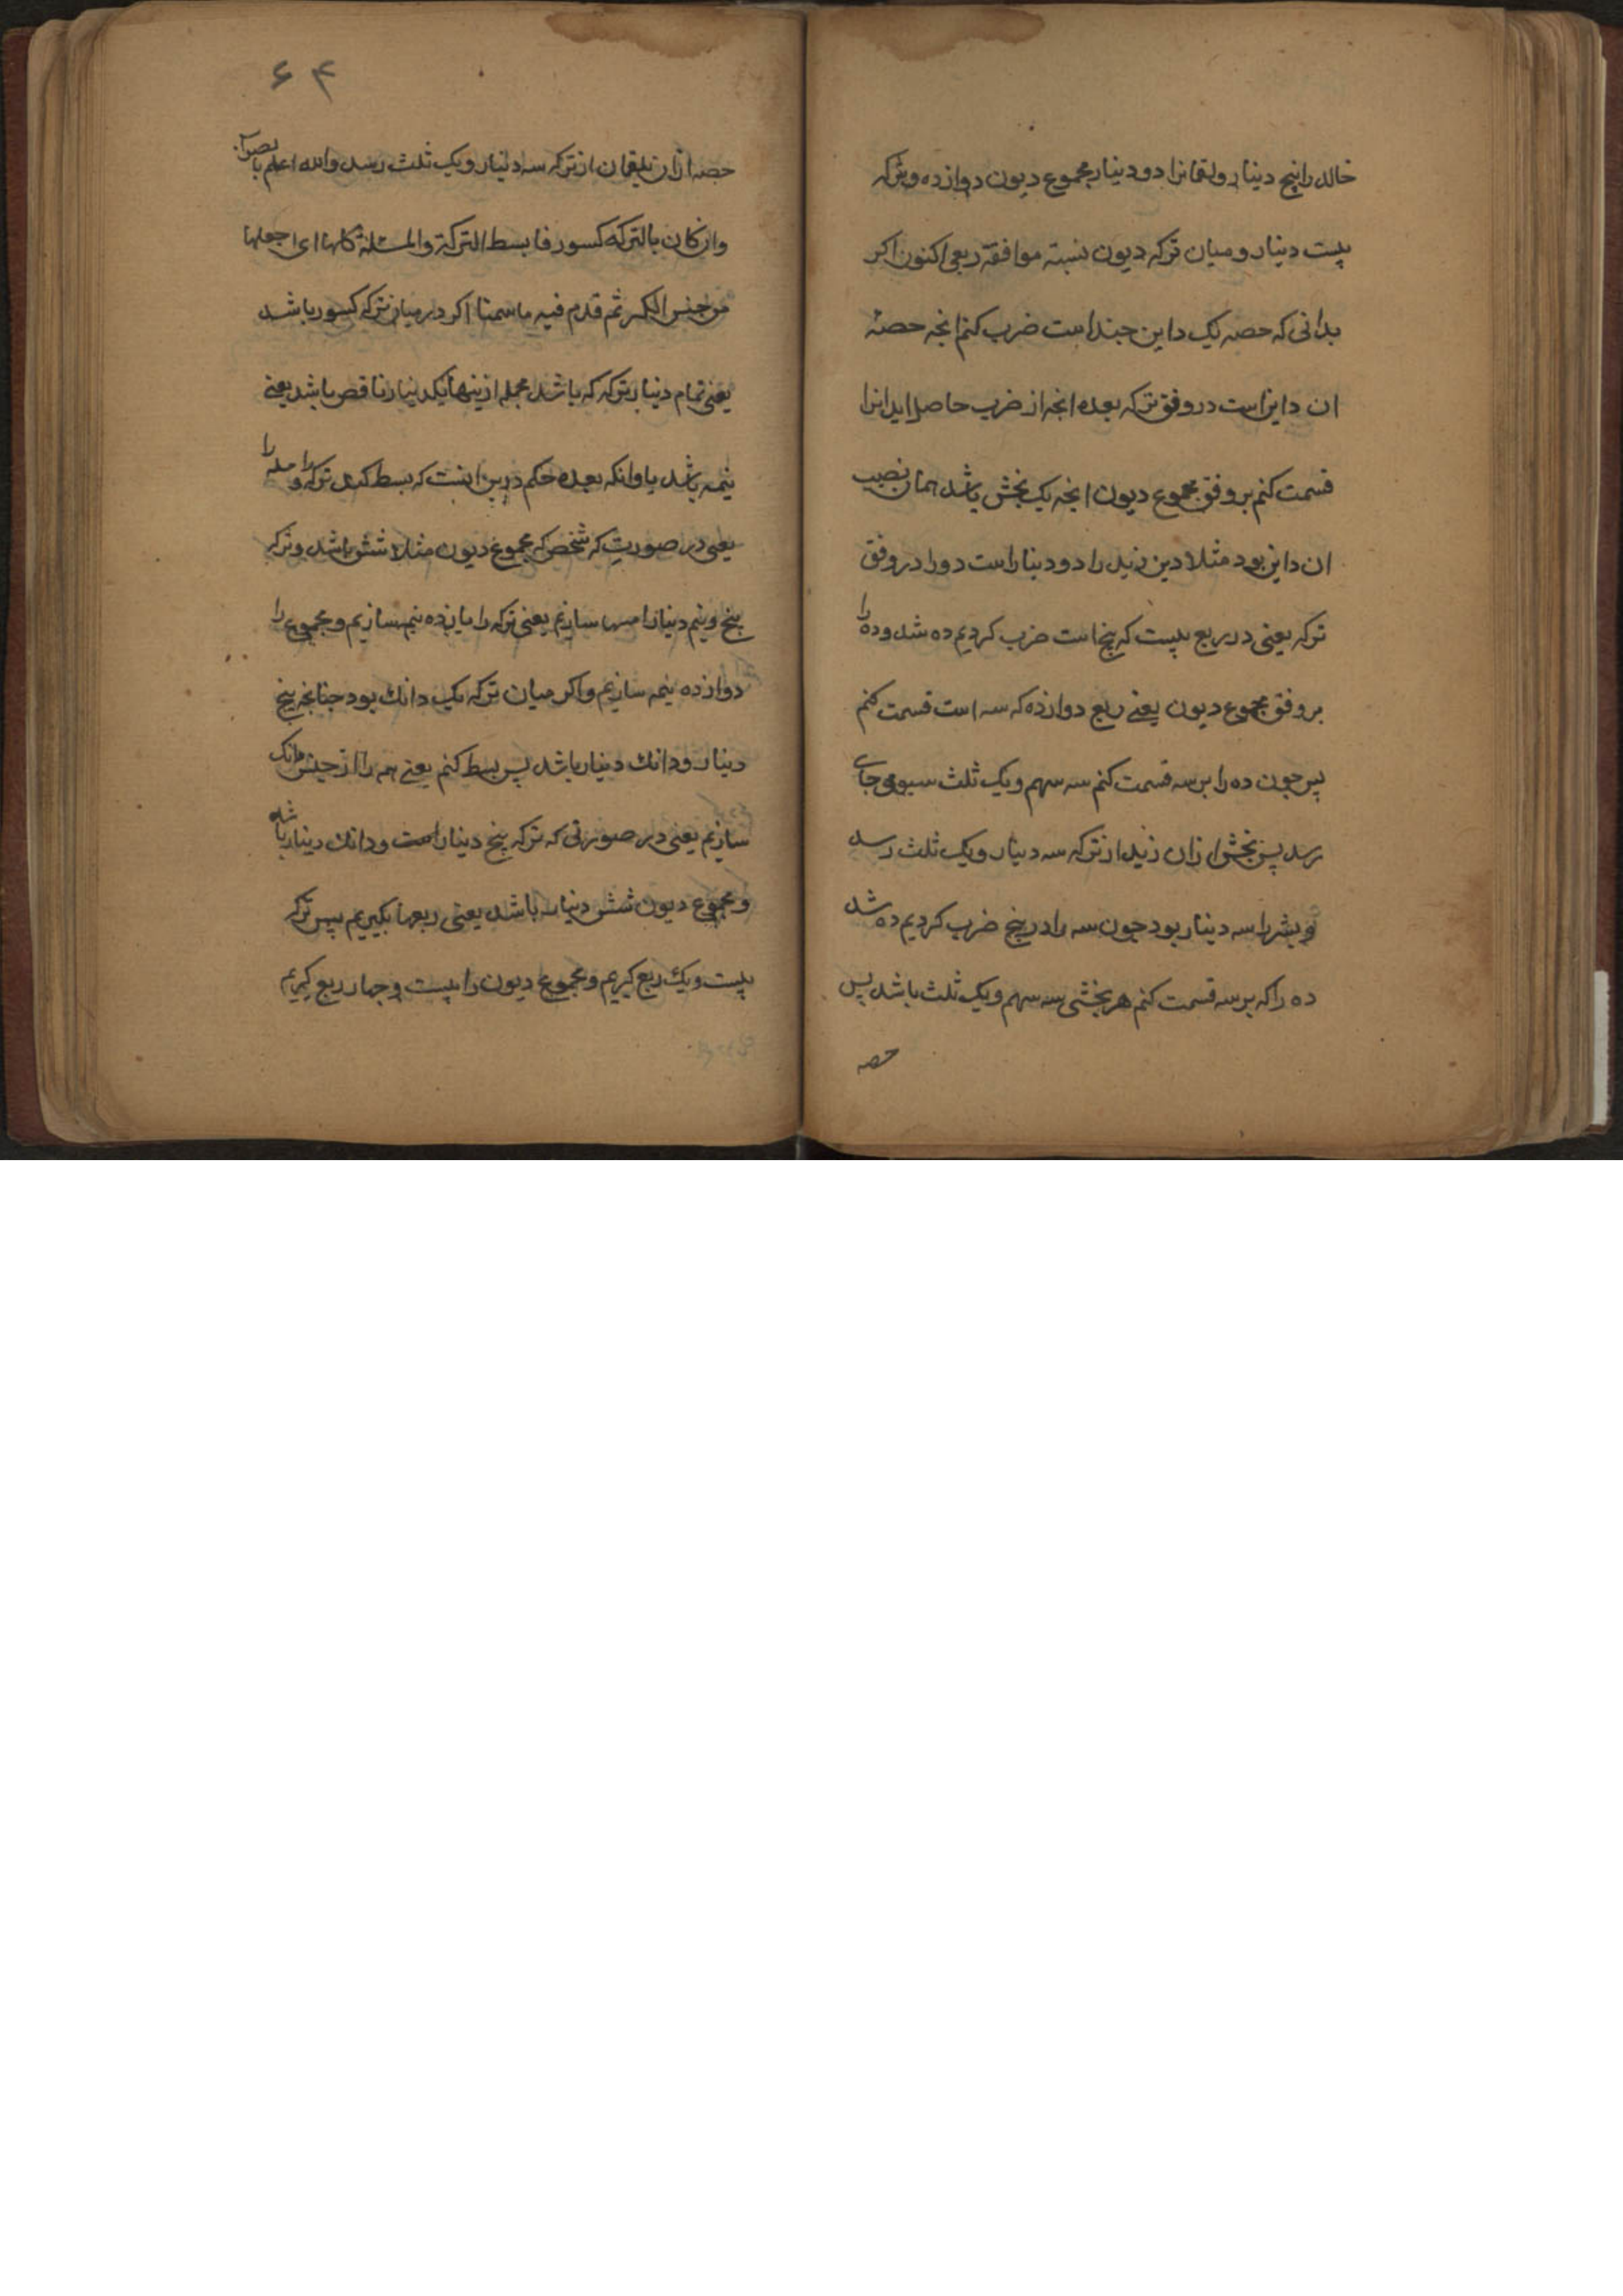 خالد را پنج دینار ولقمانرا دو دینار مجموع دیون دوازده وترکه
بیست دینار و میان ترکه دیون نسبته موافقة ربعی اکنون اکر
بدانی که حصه یک داین چند است ضرب کنم انچه حصه
ان داینراست در وفق ترکه بعده انچه از ضرب حاصل اید انرا
قسمت کنم بر وفق مجموع دیون انچه یک بخش باشد همان نصیب
ان داین بود مثلا دین زید را دو دینار است دو را در وفق
ترکه یعنی در ربع بیست که پنج است ضرب کردیم ده شد وده را
بر وفق مجموع دیون یعنی ربع دوازده که سه است قسمت کنم
پس چون ده را بر سه قسمت کنم سه سهم ویک ثلث سیومی جای
رسد پس بخش ازان زید از ترکه سه دینار ویک ثلث رسد
و بشر را سه دینار بود چون سه را در پنج ضرب کردیم ده شد
ده را که بر سه قسمت کنم هر بخشی سه سهم ویک ثلث باشد پس
حصه
۶۴
حصه ازان از ترکه سه دینار ویک ثلث رسد والله اعلم بالصواب
وان کان بالترکه کسور فابسط الترکة والمسئلة کلها ای اجعلها
من جنس الکسر ثم قدم فیه ما سمنا اکر در میان ترکه کسور باشد
یعنی تمام دینار ترکه که باشد جمله ازینها یکدینار ناقص باشد یعنی
نیمه باشد یا وانکه بعده حکم درین انست که بسط کند ترکه را و مسله را
یعنی در صورت که شخص که مجموع دیون مثلا شش باشد وترکه
پنج ونیم دینار سازیم یعنی ترکه را یازده نیمه سازیم ومجموع را
دوازده نیمه سازیم واکر میان ترکه یک دانک بود چنانچه پنج
دینار ودانک دینار باشد پس بسط کنم یعنی همه را از جنس دانک
سازیم یعنی در صورتی که ترکه پنج دینار است ودانک دینار باشد
ومجموع دیون شش دینار باشد یعنی ربعها بکیریم پس ترکه
بیست ویک ربع کیریم ومجموع دیون را بیست وچهار ربع کیریم